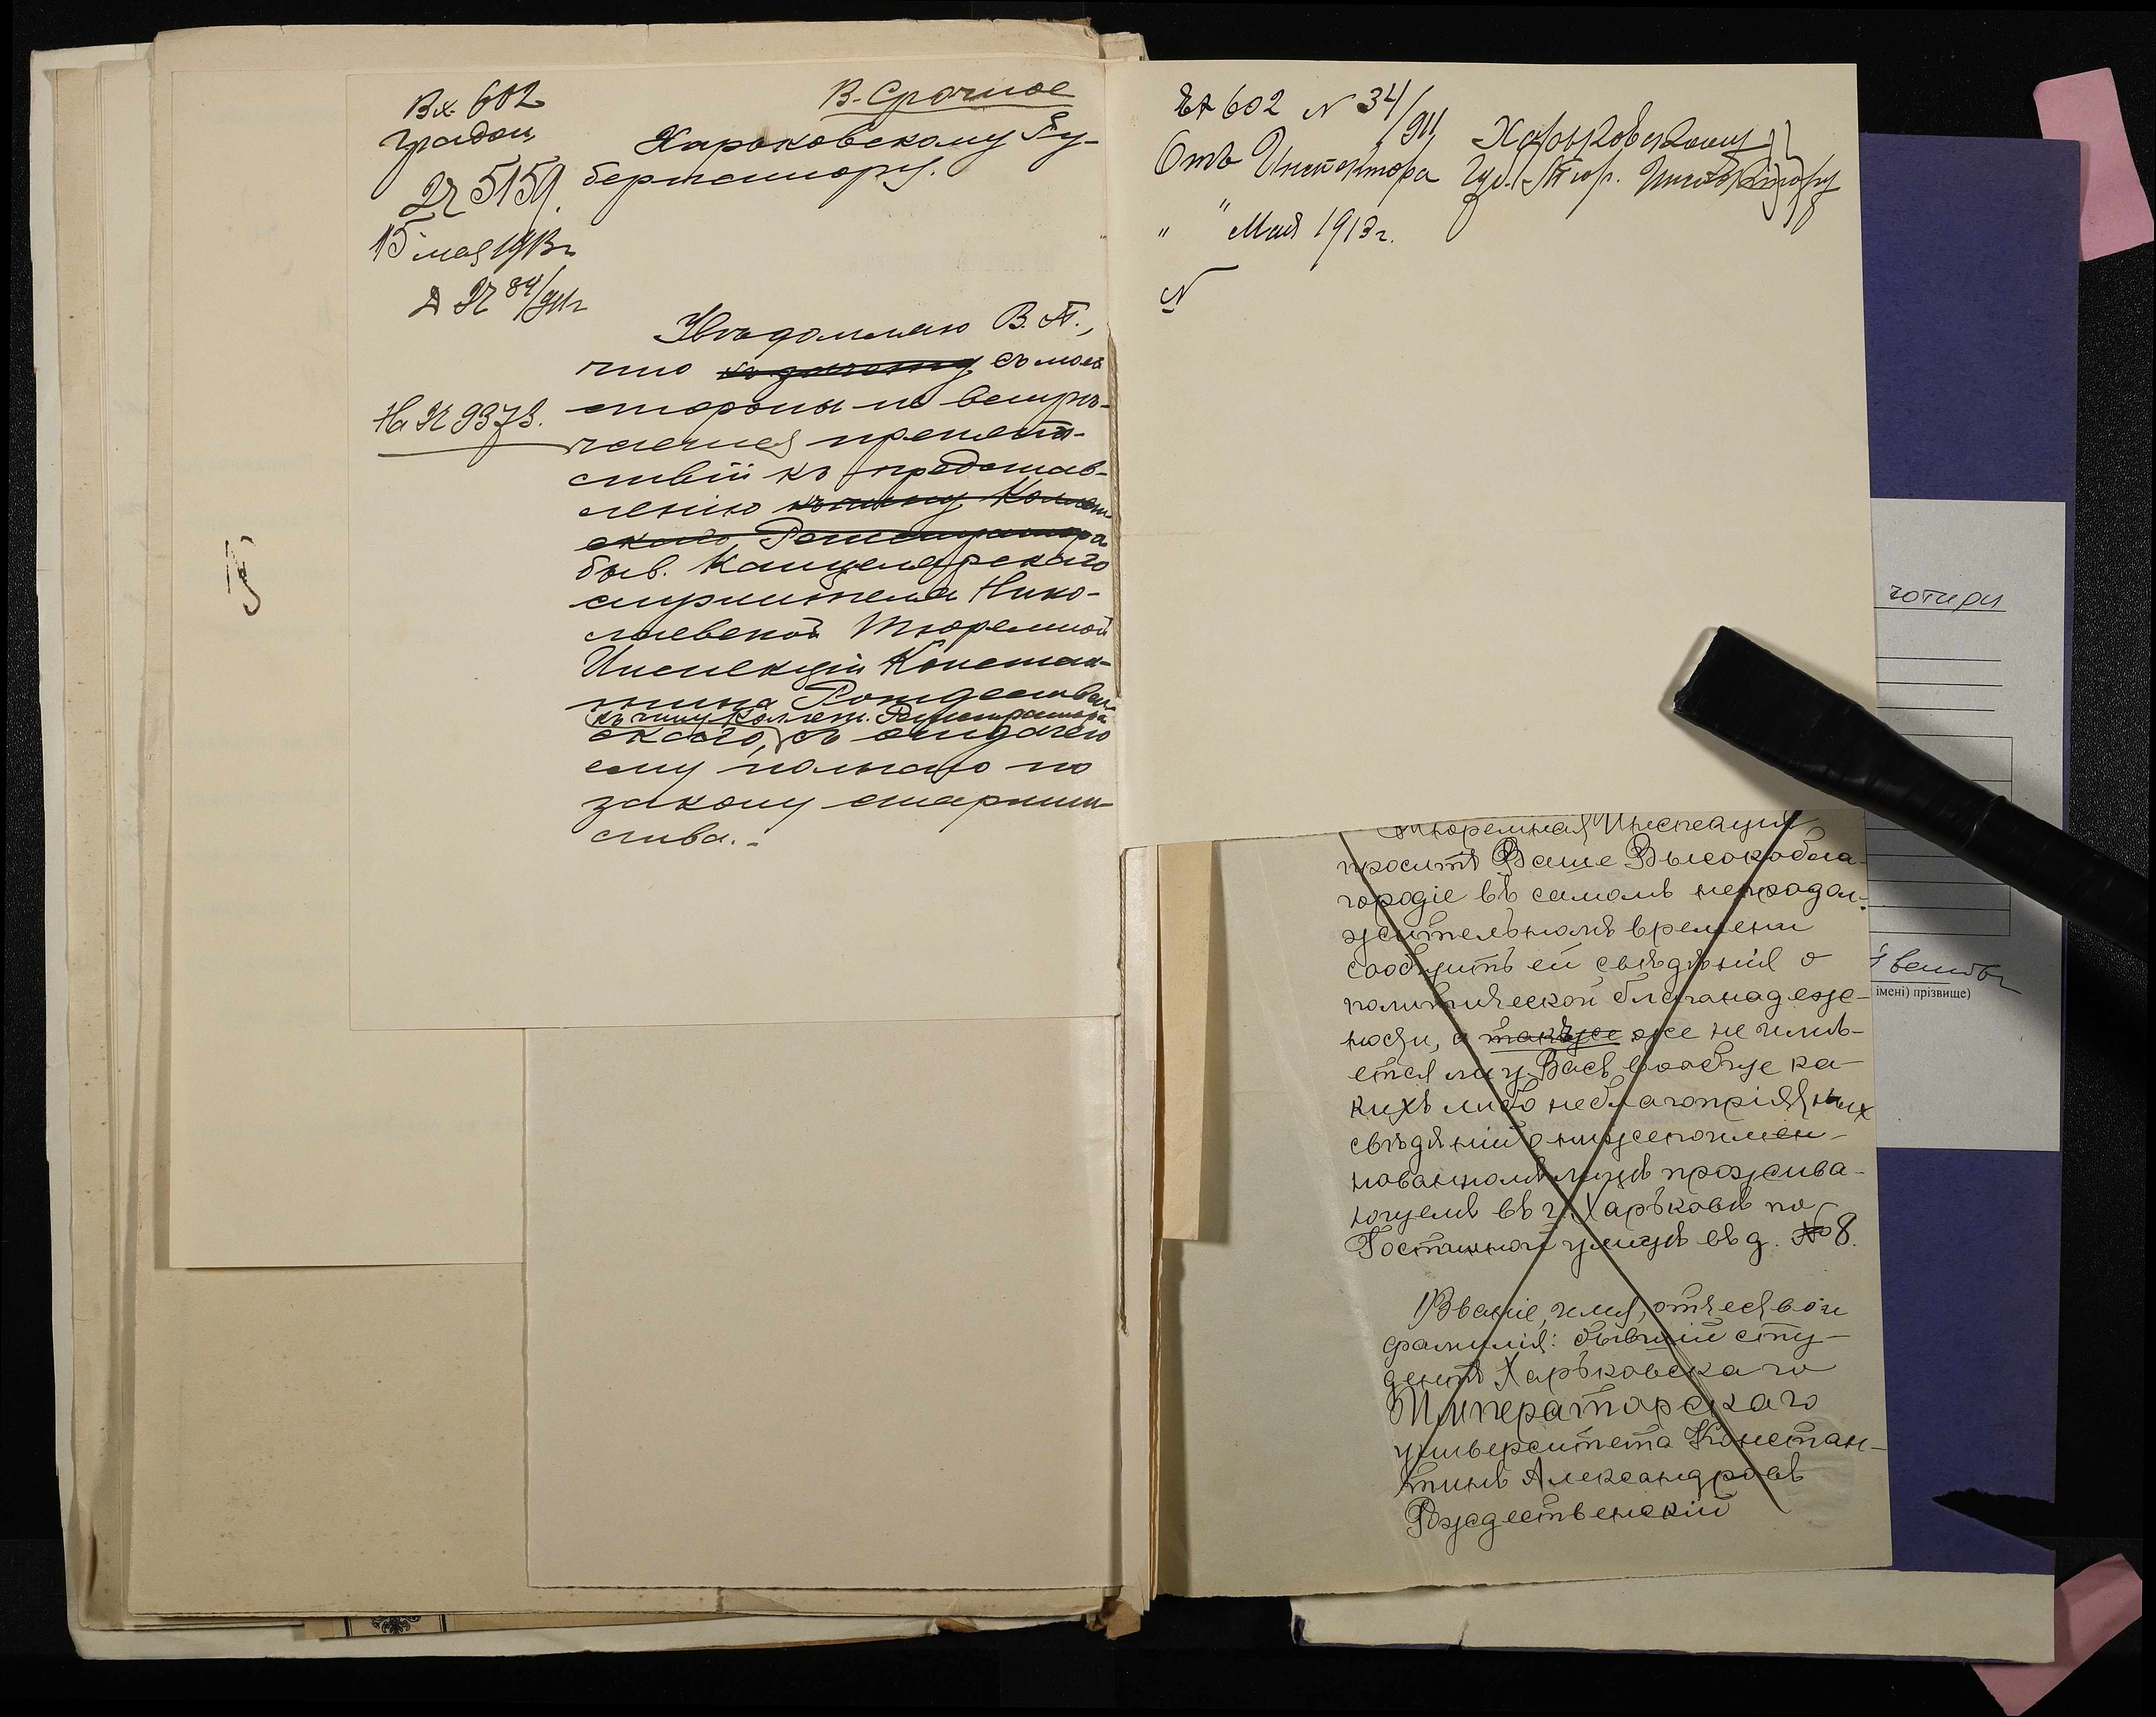 Вх. 602
градон.
№ 5159.
15 мая 1913 г.
Д № 84/911 г.
На № 9373.
В. Срочное
Харьковскому Гу-
бернатору.
Увѣдомляю В. П.,
что къ съ моей
стороны не встрѣ-
чается препят-
ствій къ представ-
ленію къ чину Коллеж
скаго Регистратора
быв. Канцелярскаго
служителя Нико-
лаевской Тюремной
Инспекціи Констан-
тина Рождествен-
къ чину Коллеж. Регистратора
скаго, съ отдачею
ему полнаго по
закону старшин-
ства. -
15
602 N 34/911
Отъ Инспектора
" " Мая 1913 г.
N
Харьковскому
Губ. Тюр. Инспектору
Тюремная Инспекція
проситъ Ваше Высокобла-
городіе въ самомъ непродол-
жительномъ времени
сообщить ей свѣдѣнія о
политической благонадеж-
ности, а также же не имѣ-
ется ли у Васъ вообще ка-
кихъ либо неблагопріятных
свѣдѣній о нижепоимен-
нованномъ лицѣ прожива-
ющемъ въ г. Харьковѣ по
Гостинной улицѣ въ д. № 8.
1) Званіе, имя, отчество и
фамилія: бывшій сту-
дентъ Харьковскаго
Императорскаго
университета Констан-
тинъ Александровъ
Рождественскій
чотири
імені) прізвище)